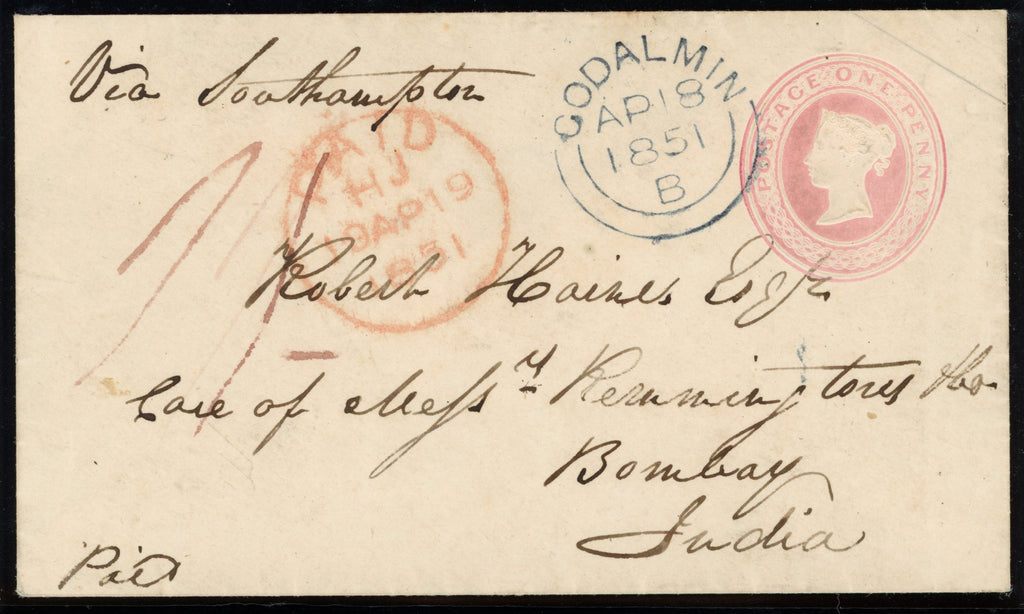 Via Southampton
GODALMIN
AP 18
1851
B
POSTAGE ONE PENNY
PAID
HJ
AP 19
1851
1/-
Robert Haines Esqr
Care of Messrs Remmingtons &Co
Bombay
India
Paid